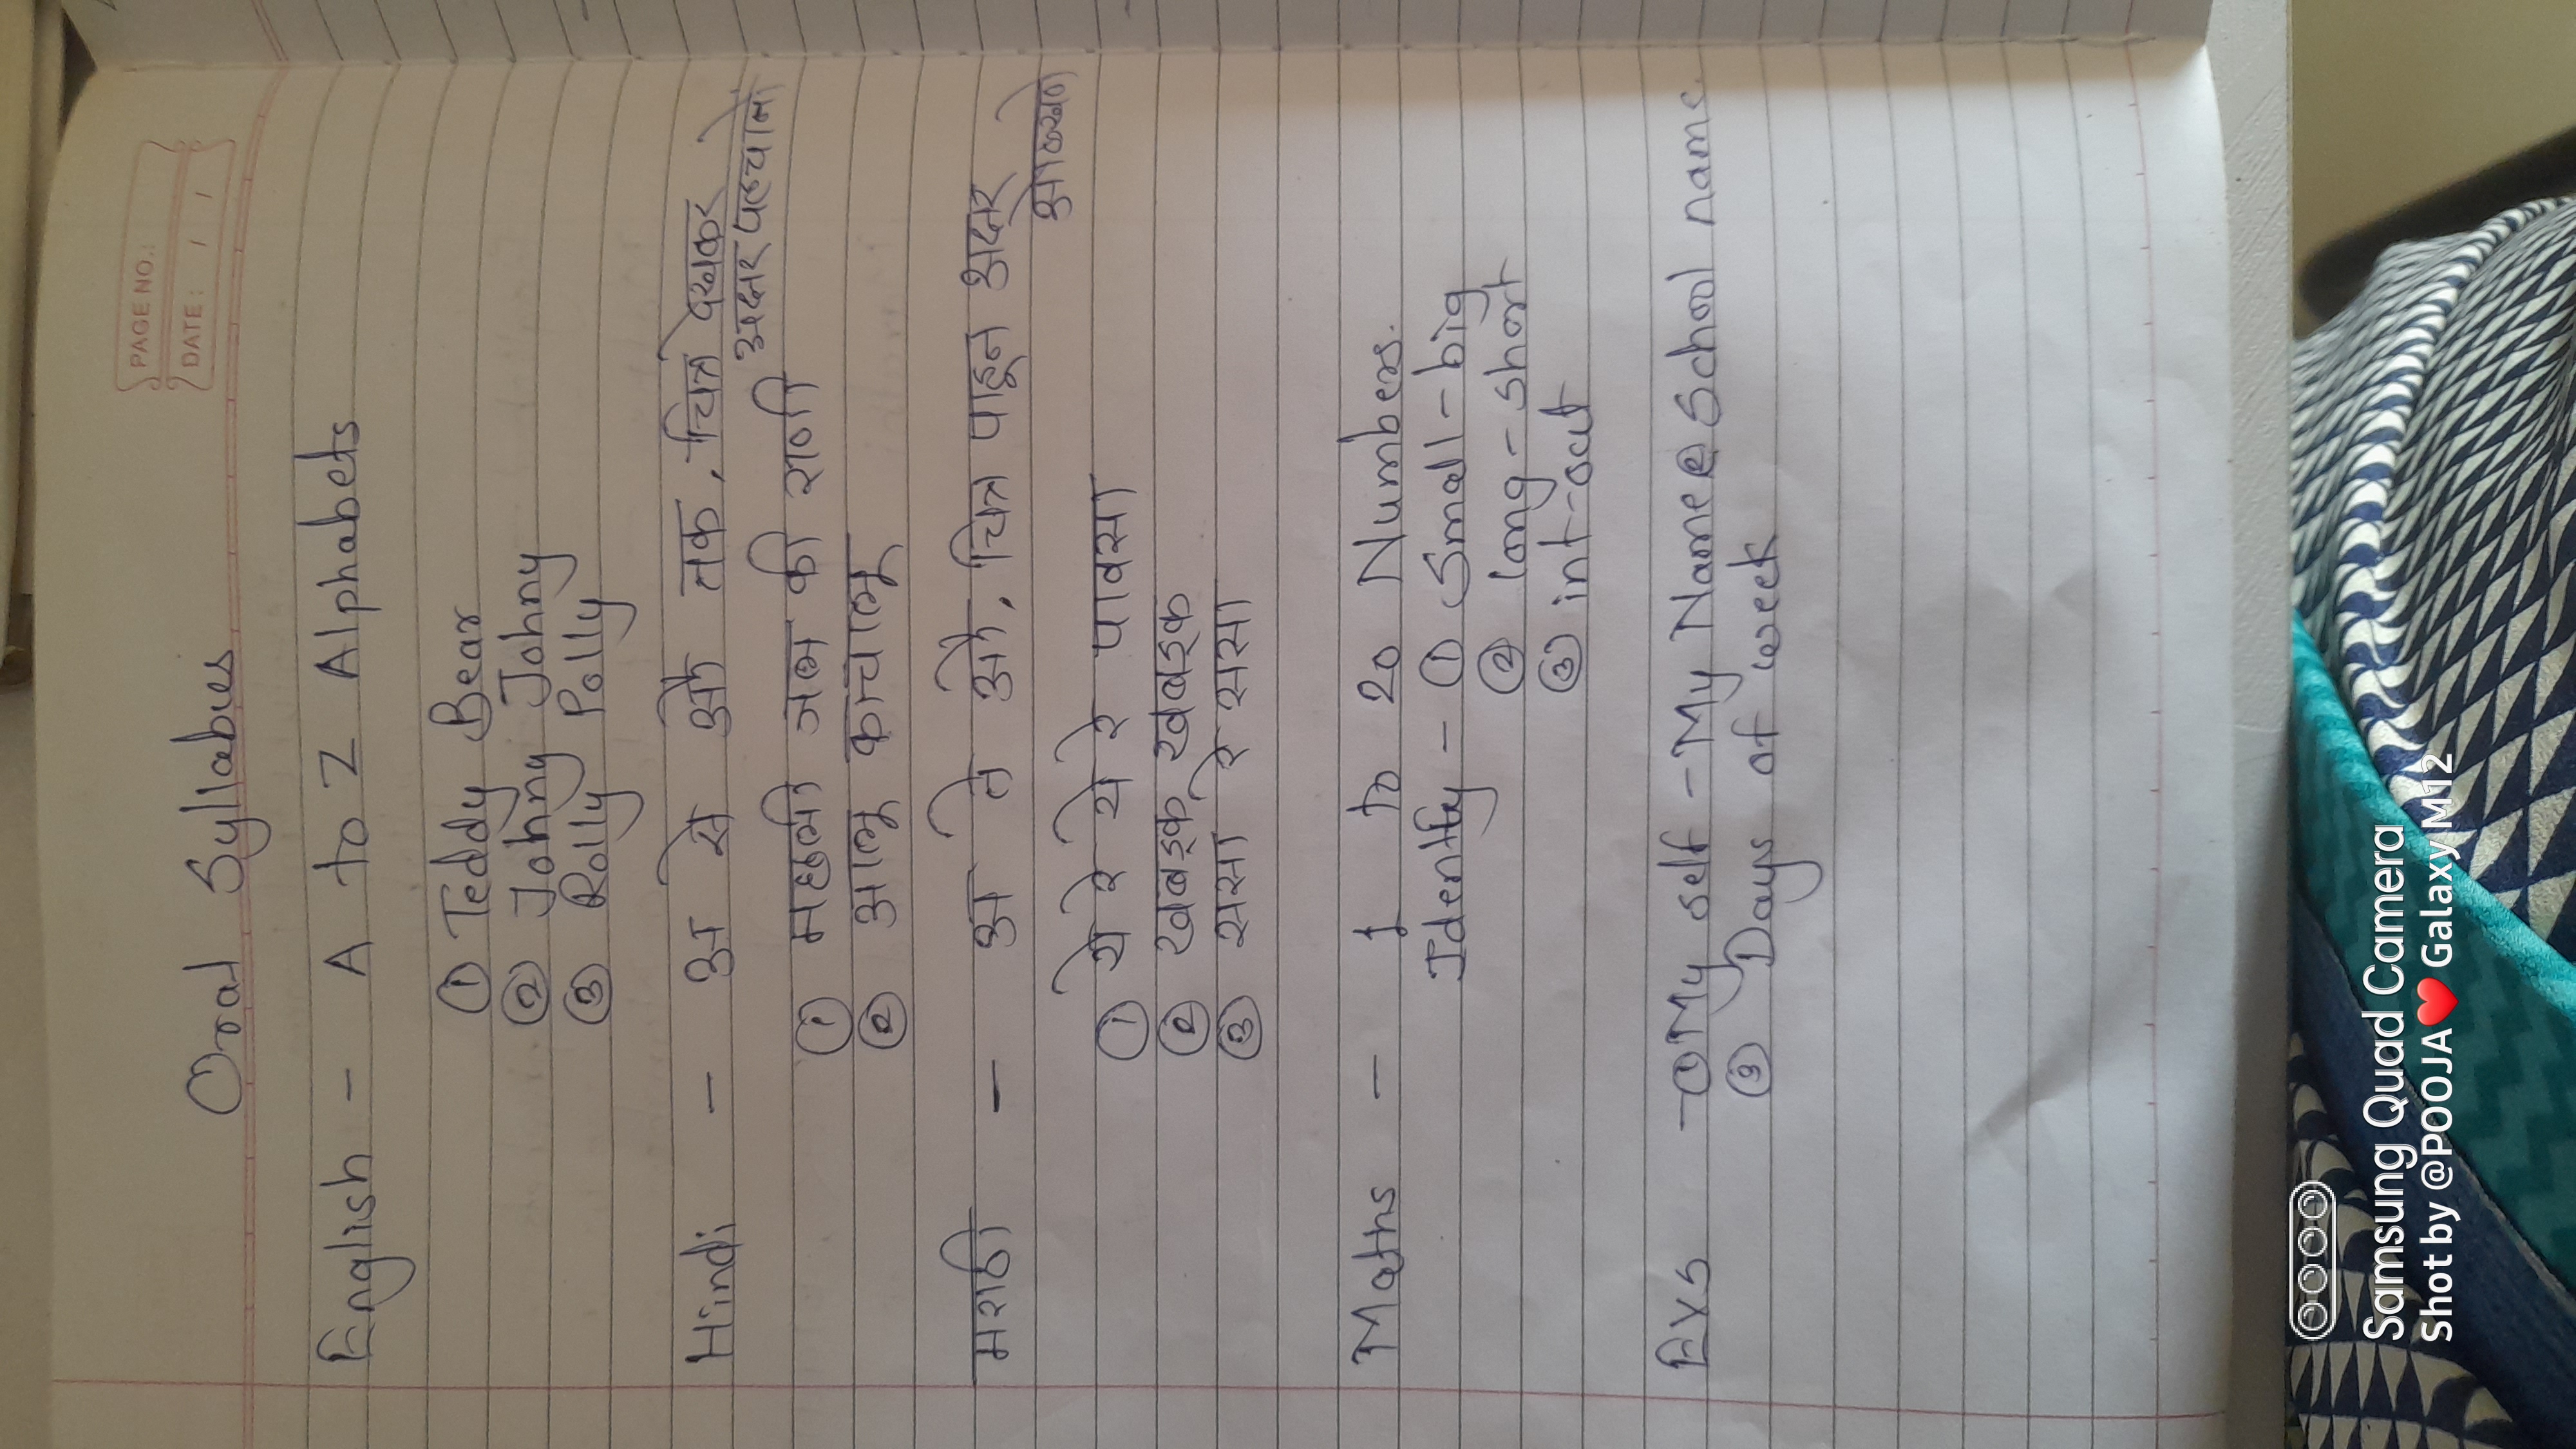 PAGE NO.:
DATE: / /
Oral Syllabus
English - A to Z Alphabets
① Teddy Bear
② Johny Johny
③ Rolly Polly
Hindi - अ से औ तक, चित्र देखकर
अक्षर पहचानो
① मछली जल की रानी
② आलू काचालू
मराठी - अ ते औ, चित्र पाहून अक्षर
ओळखणे
① ये रे ये रे पावसा
② खबडक खबडक
③ ससा रे ससा
Maths - 1 to 20 Numbers.
Identify - ① Small - big
② long - short
③ int - out
EVS - ① My self - My Name @ School name.
③ Days of week
Samsung Quad Camera
Shot by @POOJA❤️GalaxyM12